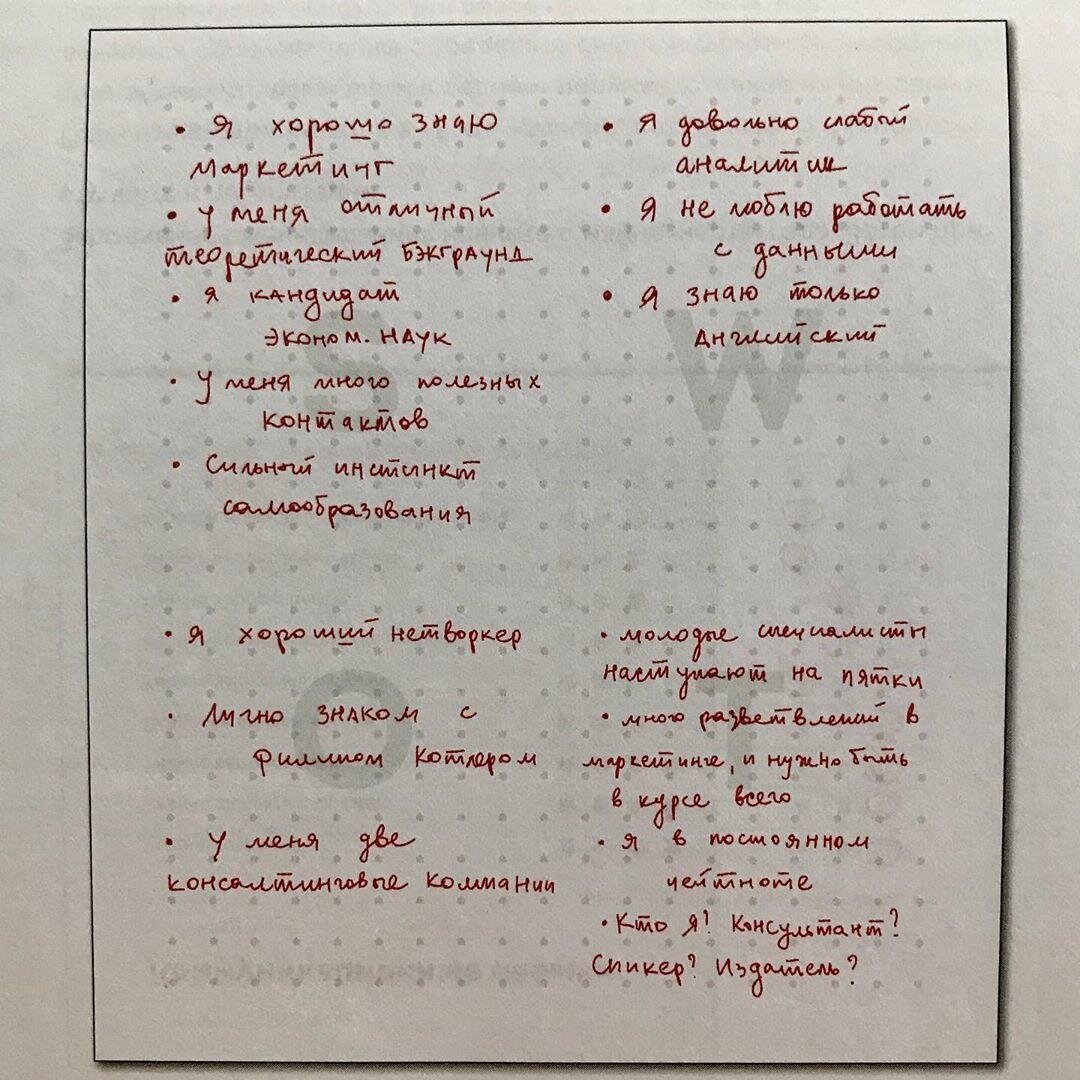 • Я хорошо знаю
маркетинг
• У меня отличный
теоретический бэкграунд
• Я кандидат
эконом. наук
• У меня много полезных
контактов
• Сильный инстинкт
самообразования
• Я довольно слабый
аналитик
• Я не люблю работать
с данными
• Я знаю только
английский
S W
• Я хороший нетворкер
• Лично знаком с
Филипом Котлером
• У меня две
консалтинговые компании
• молодые специалисты
наступают на пятки
• много разветвлений в
маркетинге, и нужно быть
в курсе всего
• Я в постоянном
цейтноте
• Кто я? Консультант?
Спикер? Издатель?
O T